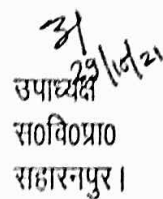 29/10/21
उपाध्यक्ष
स०वि०प्रा०
सहारनपुर।